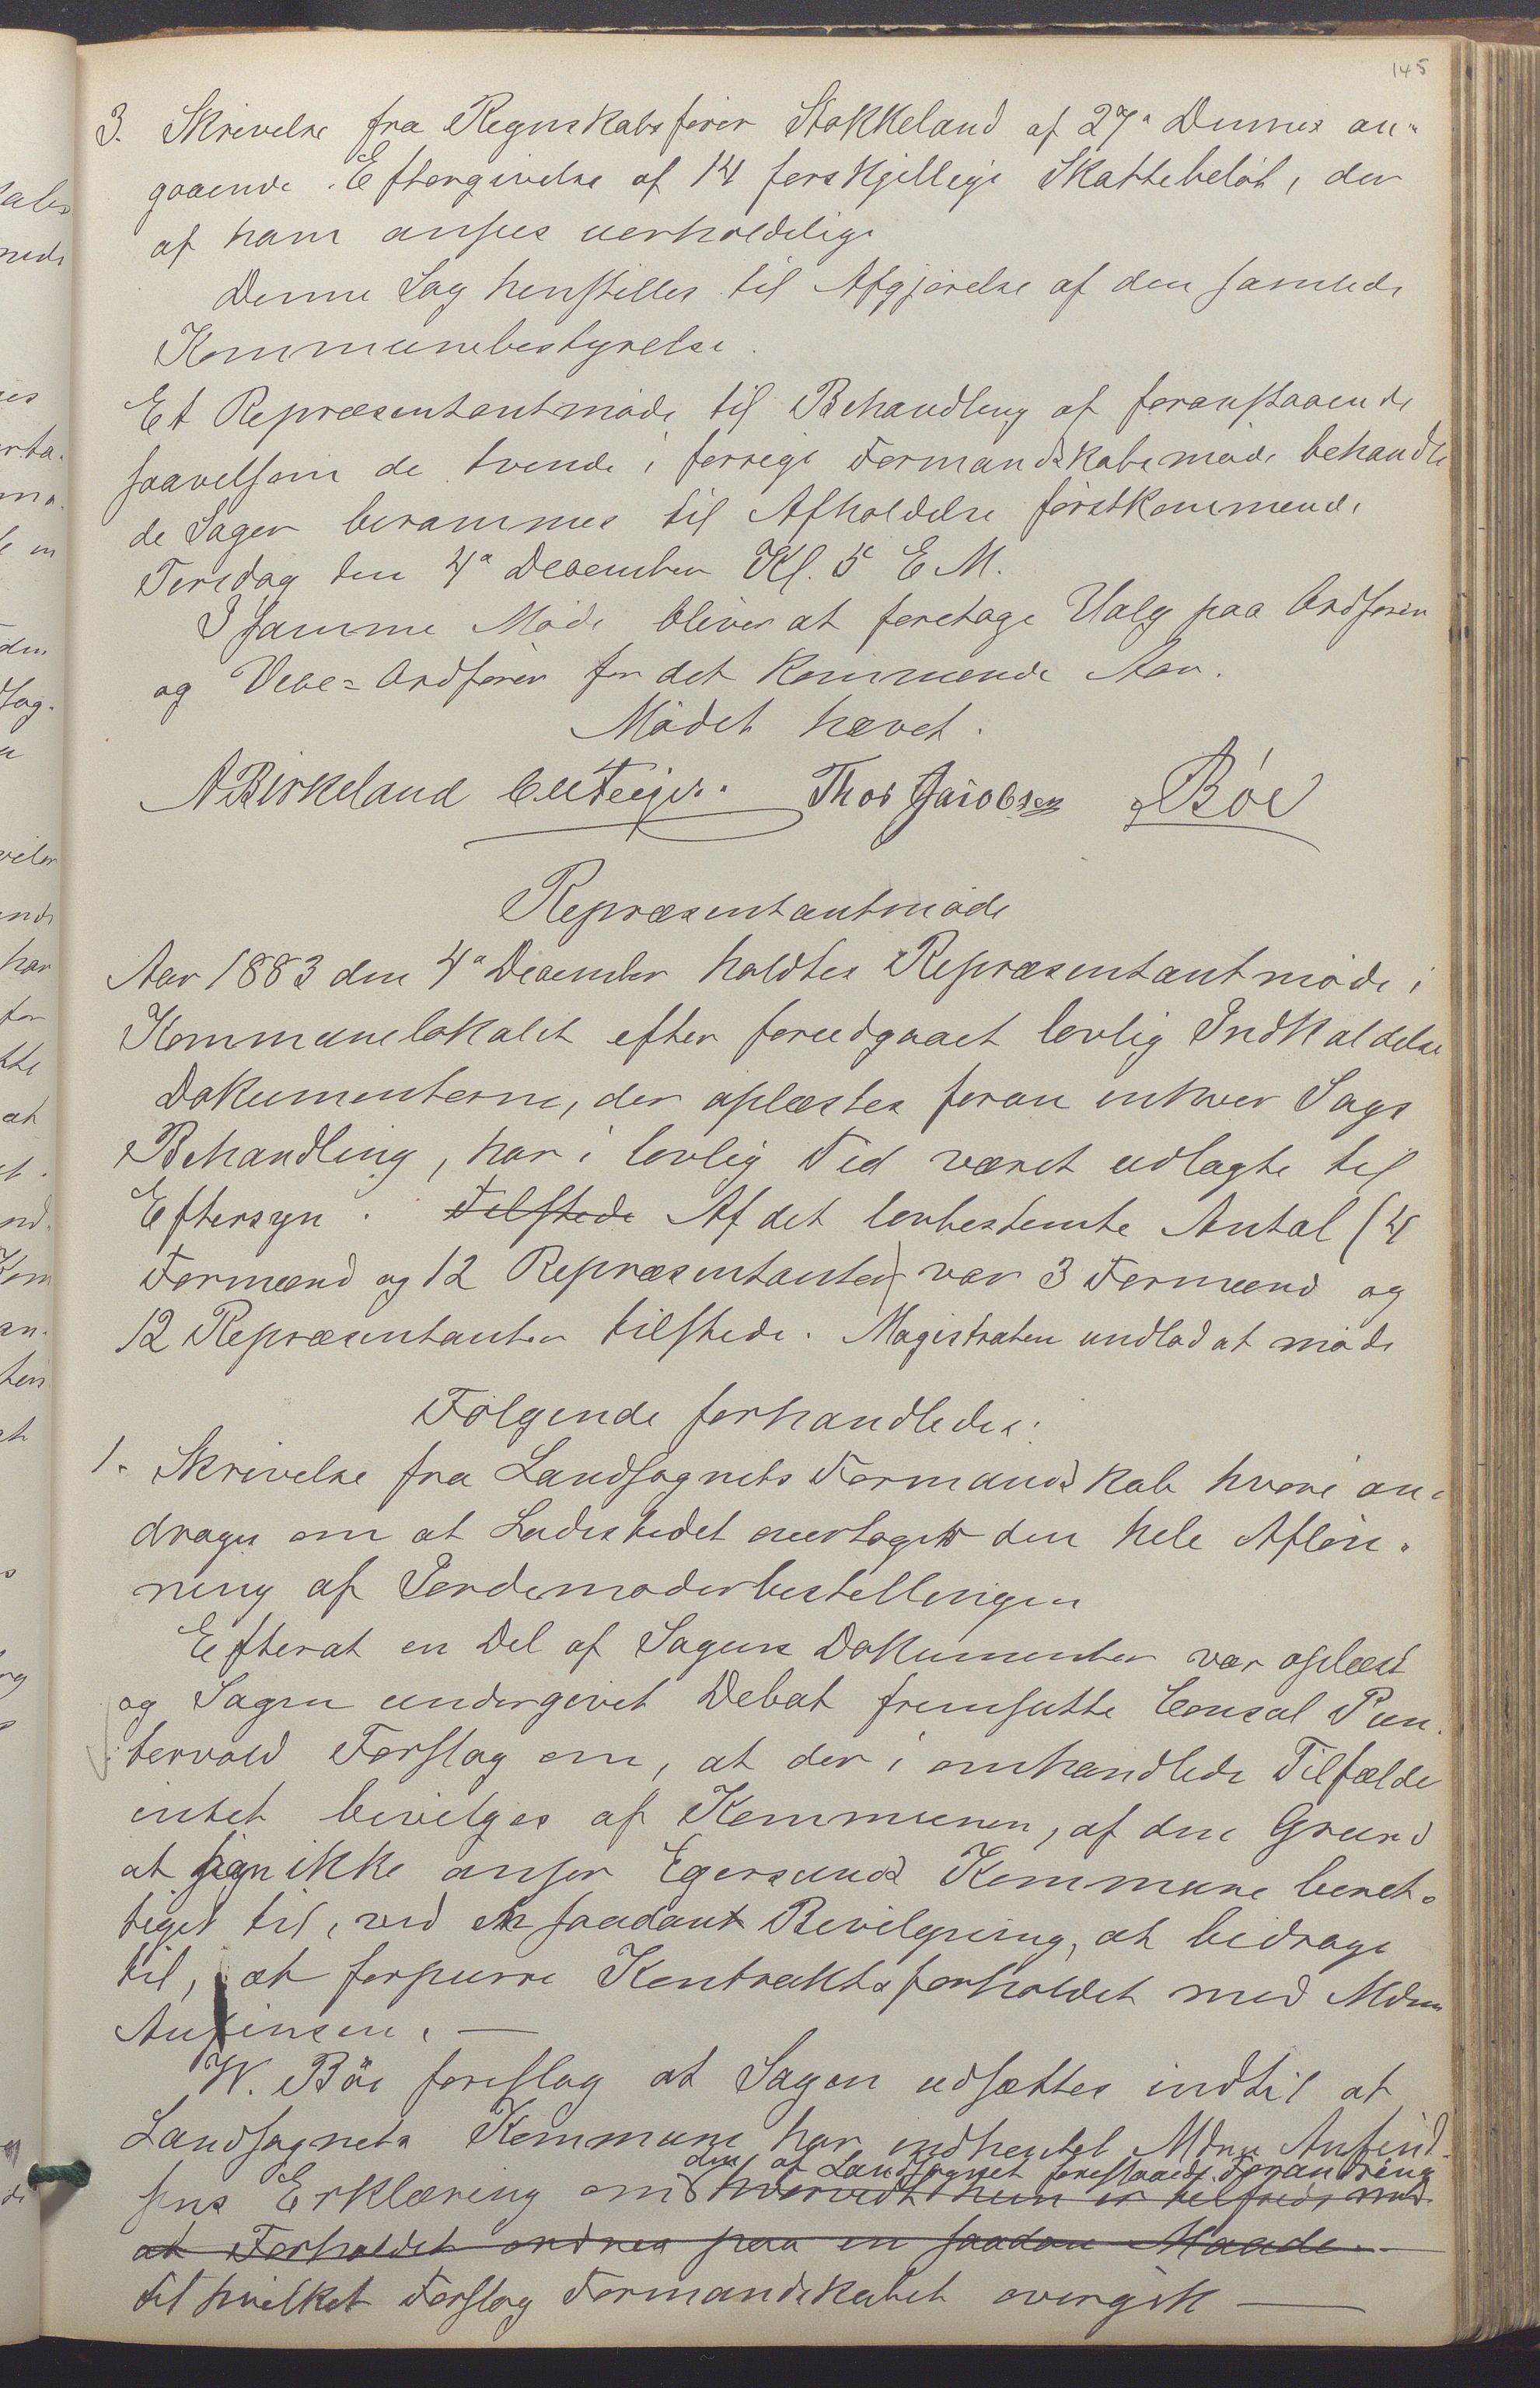 145
3. Skrivelse fra Regnskabsfører Stokkeland af 27de Dennes an-
gaaende Eftergivelse af 14 forskjellige Skattebeløb, der
af ham ansees uerholdelige
Denne Sag henstilles til Afgjørelse af den samlede
Kommunebestyrelse.
Et Repræsentantmøde til Behandling af foranstaaende
saavelsom de tvende i forrige Formandskabsmøde behandle
de Sager berammes til Afholdelse førstkommende
Tirsdag den 4de December Kl. 5 E M.
I samme Møde bliver at foretage Valg paa Ordfører
og Vice-Ordfører for det kommende Aar.
Mødet hævet.
A Birkeland Thos Jacobsen Bøe
Repræsentantmøde
Aar 1883 den 4de December holdtes Repræsentantmøde i
Kommunelokalet efter forudgaaet lovlig Indkaldelse
Dokumenterne, der oplæstes foran enhver Sags
Behandling, har i lovlig Tid været udlagte til
Eftersyn. Tilstede Af det lovbestemte Antal (4
Formænd og 12 Repræsentanter) var 3 Formænd og
12 Repræsentanter tilstede. Magistraten undlod at møde
Følgende forhandledes:
1. Skrivelse fra Landsognets Formandskab hvori an-
drages om at Ladestedet overtager den hele Afløn-
ning af Jordemoderbestillingen
Efterat en Del af Sagens Dokumenter var oplæst
og Sagen undergivet Debat fremsatte Consul Pun-
tervold Forslag om, at der i omhandlede Tilfælde
intet bevilges af Kommunen, af den Grund
at han ikke anser Egersunds Kommune beret-
tiget til, ved en saadan Bevilgning, at bidrage
til, at forpurre Kontraktsforholdet med Mdm
Anfinsen. —
W. Bøe foreslog at Sagen udsættes indtil at
Landsognets Kommune har indhentet Mdme Anfind-
den af Landsognet foreslaaede Forandring
sens Erklæring om hvorvidt hun er tilfreds med
at Forholdet ordnes paa en saadan Maade.
til hvilket Forslag Formandskabet overgik —